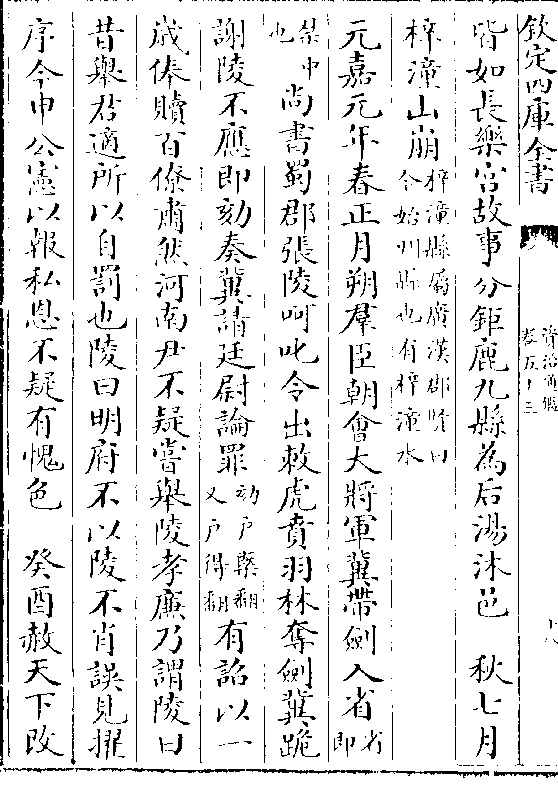 欽定四庫全書
資治通鑑
卷五十三
十八
皆如長樂宮故事分鉅鹿九縣為后湯沐邑　秋七月
梓潼山崩梓潼縣屬廣漢郡賢曰今始州縣也有梓潼水
元嘉元年春正月朔羣臣朝會大將軍冀帶劍入省省即
禁中也尚書蜀郡張陵呵叱令出敕虎賁羽林奪劍冀跪
謝陵不應即劾奏冀請廷尉論罪劾戶槩翻又戶得翻有詔以一
歲俸贖百僚肅然河南尹不疑嘗舉陵孝廉乃謂陵曰
昔舉君適所以自罰也陵曰明府不以陵不肖誤見擢
序今申公憲以報私恩不疑有愧色　癸酉赦天下改